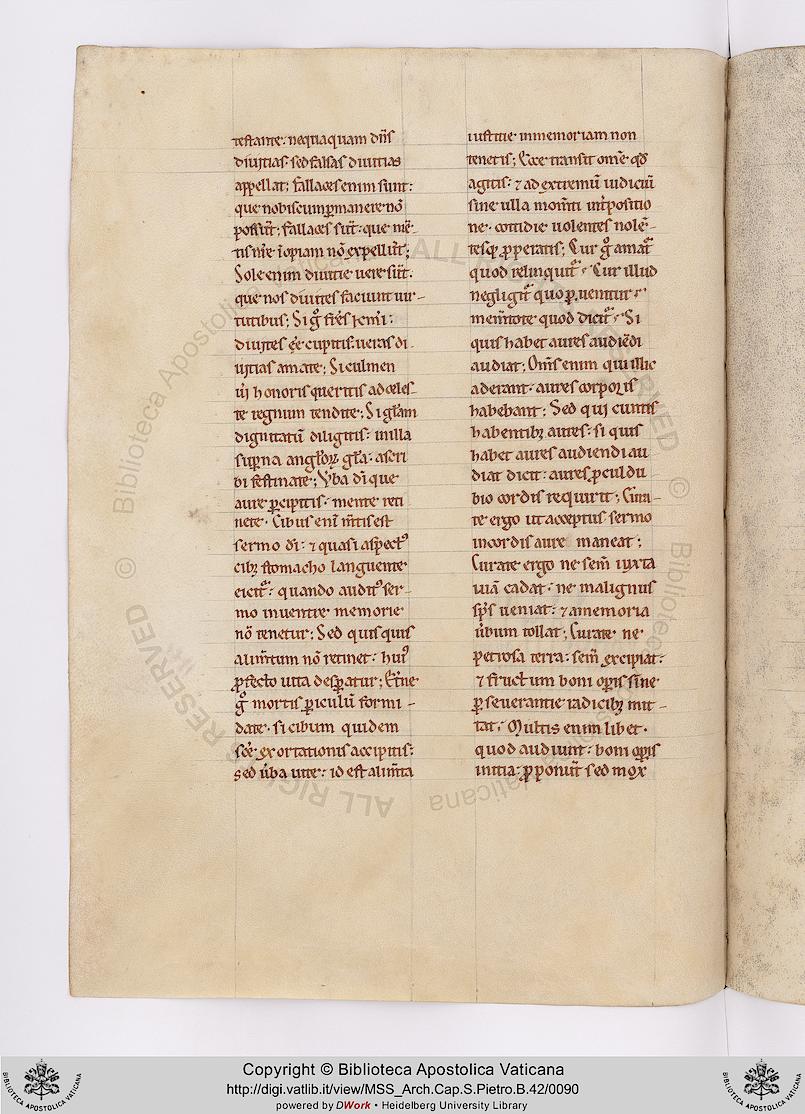 testante: nequaquam dn̄s
diuitias. sed falsas diuitias
appellat; fallaces enim sunt:
que nobiscum ꝑmanere nō
possūt: fallaces sūt: que mē
tis nr̄e īopiam nō expellūt;
Sole enim diuitie uere sūt.
que nos diuites faciunt uir-
tutibus; Si gͦ fr̄es kr̄mi:
diuites ēe cupitis. ueras di
uitias amate; Si culmen
ui honoris queritis ad celes-
te regnum tendite; Si gl̄am
dignitatū diligitis: in illa
sup̄na angl̄oꝝ gl̄a: ascri
bi festinate; Ūba dī que
aure ꝑcipitis. mente reti
nete. Cibus enī m̄tis est
sermo dī: ⁊ quasi accept᷒
cibꝫ stomacho languente
eicit᷑: quando audit᷒ ser-
mo in uentre memorie
nō tenetur; Sed quisquis
alim̄tum nō retinet. hui᷒
ꝓfecto uita desꝑatur; Et̄ne
gͦ mortis ꝑiculū formi-
date. si cibum quidem
sc̄e exortationis accipitis:
sed ūba uite: id est alim̄ta
iustitie in memoriam non
tenetis; Ecce transit om̄e qd̄
agitis. ⁊ ad extremū iudiciū
sine ulla mom̄ti int̄positio
ne. cottidie uolentes nolē-
tesqꝫ ꝓperatis; Cur gͦ amat᷑
quod relinquit᷑. Cur illud
negligit᷑ quo ꝑuenitur.
mem̄tote quod dicit᷑. Si
quis habet aures audiēdi
audiat; Om̄s enim qui illic
aderant. aures corporis
habebant; Sed qui cuntis
habentibꝫ aures: si quis
habet aures audiendi au
diat dicit: aures ꝓcul du
bio cordis requirit; Cura-
te ergo ut acceptus sermo
in cordis aure maneat;
Curate ergo ne sem̄ iuxta
uiā cadat. ne malignus
sp̄s ueniat: ⁊ a memoria
ūbum tollat; Curate ne
petrosa terra: sem̄ excipiat:
⁊ fructum boni oꝑis sine
ꝑseuerantie radicibꝫ mit-
tat. Multis enim libet.
quod audiunt: boni oꝑis
initia: ꝓponūt sed mox
Copyright © Biblioteca Apostolica Vaticana
http://digi.vatlib.it/view/MSS_Arch.Cap.S.Pietro.B.42/0090
powered by DWork • Heidelberg University Library